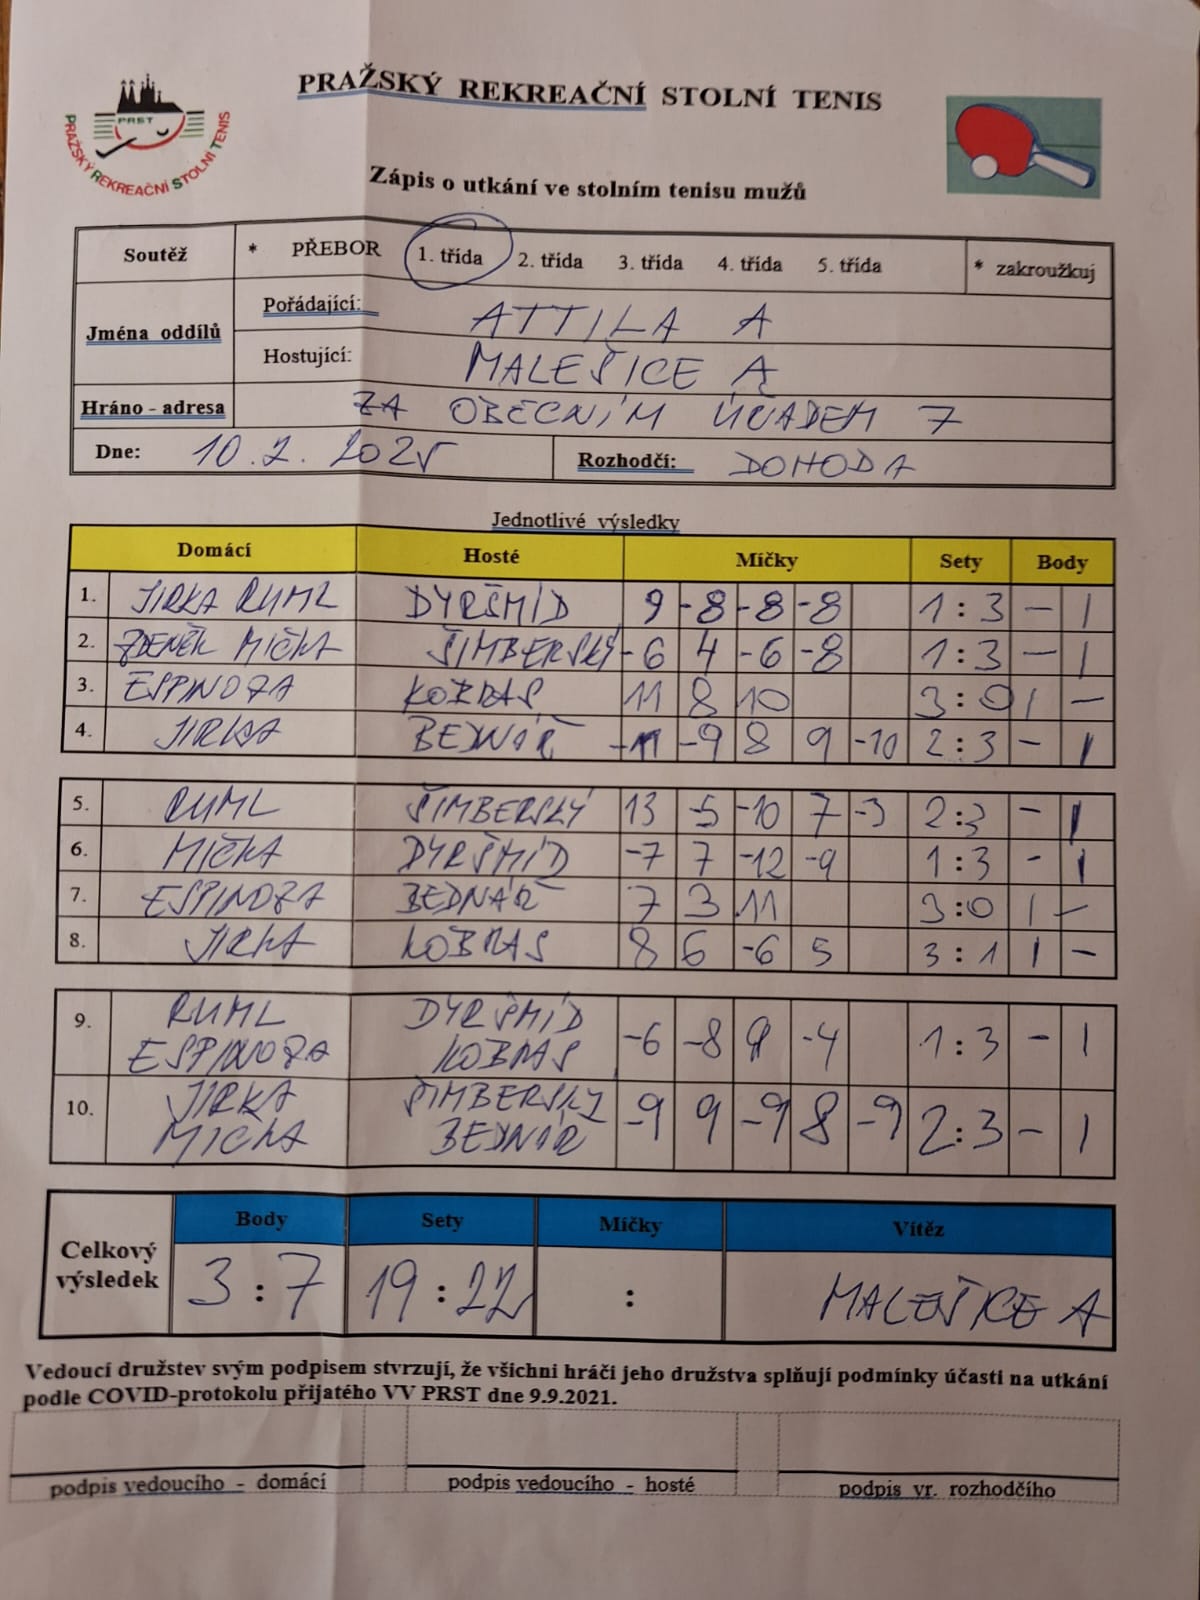 PRAŽSKÝ REKREAČNÍ STOLNÍ TENIS
PRST
PRAŽSKÝ REKREAČNÍ STOLNÍ TENIS
Zápis o utkání ve stolním tenisu mužů
Soutěž * PŘEBOR 1. třída 2. třída 3. třída 4. třída 5. třída * zakroužkuj
Jména oddílů
Pořádající: ATTILA A
Hostující: MALEŠICE A
Hráno - adresa ZA OBECNÍM ÚŘADEM 7
Dne: 10.2.2025 Rozhodčí: DOHODA
Jednotlivé výsledky
Domácí Hosté Míčky Sety Body
1. JIRKA RUML DYRŠMÍD 9 -8 -8 -8 1:3 - 1
2. ZDENĚK MIČKA ŠIMBERSKÝ -6 4 -6 -8 1:3 - 1
3. ESPINOZA KOBRAS 11 8 10 3:0 1 -
4. JIRKA BEDNÁŘ -11 -9 8 9 -10 2:3 - 1
5. RUML ŠIMBERSKÝ 13 -5 -10 7 -3 2:3 - 1
6. MIČKA DYRŠMÍD -7 7 -12 -9 1:3 - 1
7. ESPINOZA BEDNÁŘ 7 3 11 3:0 1 -
8. JIRKA KOBRAS 8 6 -6 5 3:1 1 -
9. RUML DYRŠMÍD -6 -8 9 -4 1:3 - 1
ESPINOZA KOBRAS
10. JIRKA ŠIMBERSKÝ -9 9 -9 8 -9 2:3 - 1
MIČKA BEDNÁŘ
Body Sety Míčky Vítěz
Celkový výsledek 3:7 19:22 : MALEŠICE A
Vedoucí družstev svým podpisem stvrzují, že všichni hráči jeho družstva splňují podmínky účasti na utkání
podle COVID-protokolu přijatého VV PRST dne 9.9.2021.
podpis vedoucího - domácí podpis vedoucího - hosté podpis vr. rozhodčího